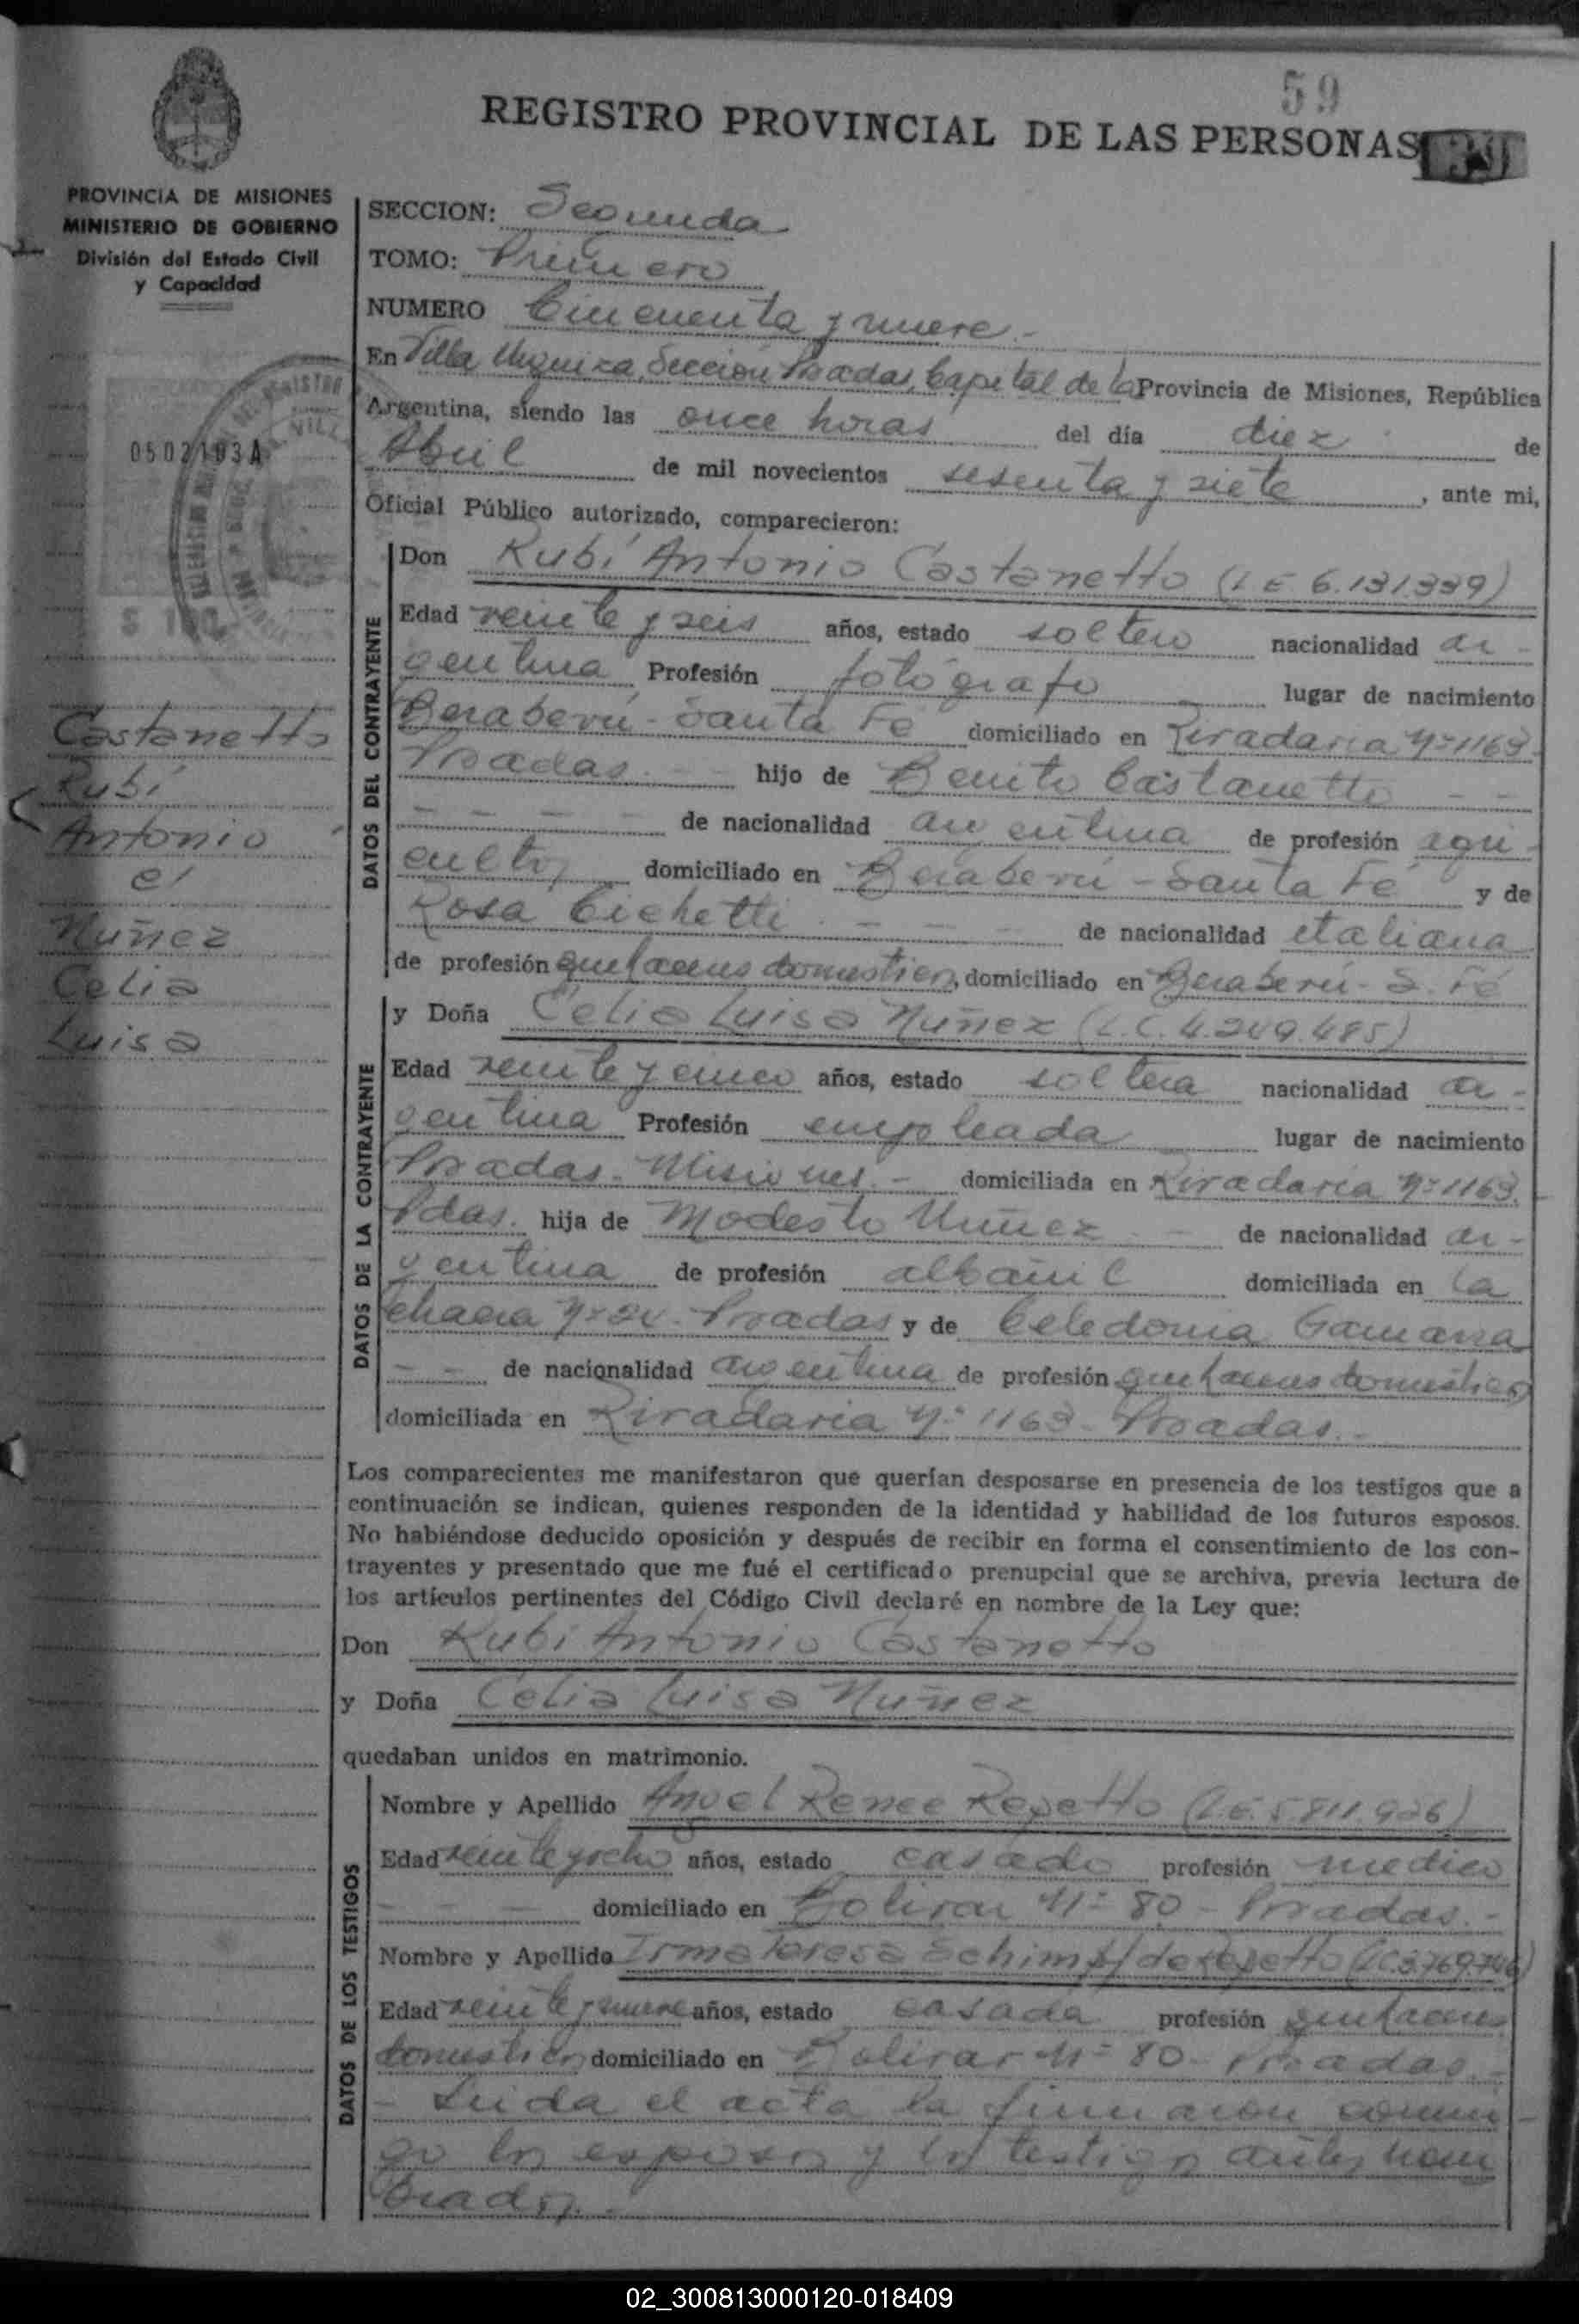 59
REGISTRO PROVINCIAL DE LAS PERSONAS
PROVINCIA DE MISIONES
MINISTERIO DE GOBIERNO
División del Estado Civil
y Capacidad
0502193A
Castanetto
Rubí
Antonio
c/
Nuñez
Celia
Luisa
SECCION: Segunda
TOMO: Primero
NUMERO Cincuenta y nueve.-
En Villa Urquiza, Sección Posadas, Capital de la Provincia de Misiones, República
Argentina, siendo las once horas del día diez de
Abril de mil novecientos sesenta y siete, ante mi,
Oficial Público autorizado, comparecieron:
DATOS DEL CONTRAYENTE
Don Rubí Antonio Castanetto (L E 6.131.339)
Edad veinte y seis años, estado soltero nacionalidad ar-
gentina Profesión fotógrafo lugar de nacimiento
Beraberú - Santa Fé domiciliado en Rivadavia Nº 1163.
Posadas. - - hijo de Benito Castanetto - -
- - - - de nacionalidad argentina de profesión agri-
cultor domiciliado en Beraberú - Santa Fé y de
Rosa Cichetti. - - - de nacionalidad italiana
de profesión quehaceres domésticos, domiciliado en Beraberú - S. Fé
DATOS DE LA CONTRAYENTE
y Doña Celia Luisa Nuñez (L.C. 4.249.485)
Edad veinte y cinco años, estado soltera nacionalidad ar-
gentina Profesión empleada lugar de nacimiento
Posadas - Misiones.- domiciliada en Rivadavia Nº 1163.
Pdas. hija de Modesto Nuñez - - de nacionalidad ar-
gentina de profesión albañil domiciliada en la
chacra Nº Posadas y de Celedonia Gamarra
- - de nacionalidad argentina de profesión quehaceres domésticos
domiciliada en Rivadavia Nº 1163 - Posadas.-
Los comparecientes me manifestaron que querían desposarse en presencia de los testigos que a
continuación se indican, quienes responden de la identidad y habilidad de los futuros esposos.
No habiéndose deducido oposición y después de recibir en forma el consentimiento de los con-
trayentes y presentado que me fué el certificado prenupcial que se archiva, previa lectura de
los artículos pertinentes del Código Civil declaré en nombre de la Ley que:
Don Rubí Antonio Castanetto
y Doña Celia Luisa Nuñez
quedaban unidos en matrimonio.
DATOS DE LOS TESTIGOS
Nombre y Apellido Angel Renee Repetto (L.E. 5.811.926)
Edad veinte y ocho años, estado casado profesión medico
- - - domiciliado en Bolivar Nº 80 - Posadas.-
Nombre y Apellido Irma Teresa Schimpf de Repetto (L.C. 3.769.746)
Edad veinte y nueve años, estado casada profesión quehaceres
domésticos domiciliado en Bolivar Nº 80 - Posadas.-
- Leida el acta la firmaron conmi-
go los esposos y los testigos antes nom
brados.-
02_300813000120-018409